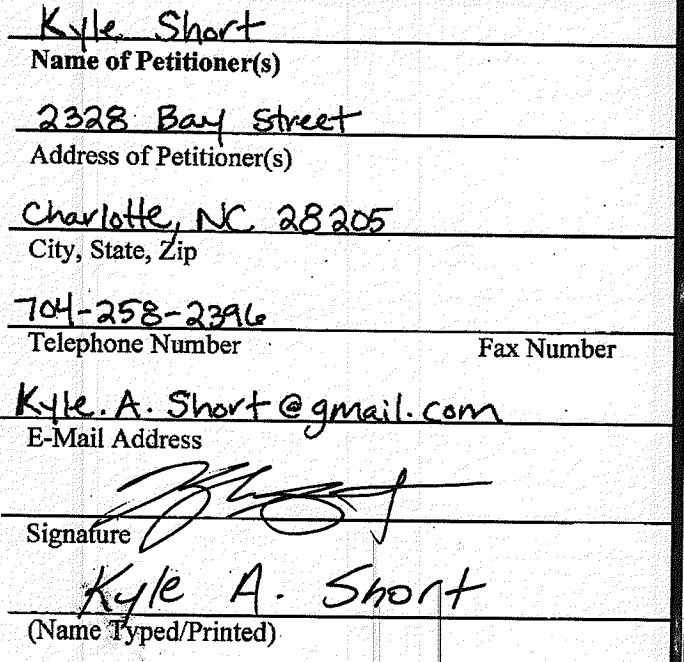 Kyle Short
Name of Petitioner(s)
2328 Bay Street
Address of Petitioner(s)
Charlotte, NC 28205
City, State, Zip
704-258-2396
Telephone Number Fax Number
Kyle.A.Short@gmail.com
E-Mail Address
Signature
Kyle A. Short
(Name Typed/Printed)